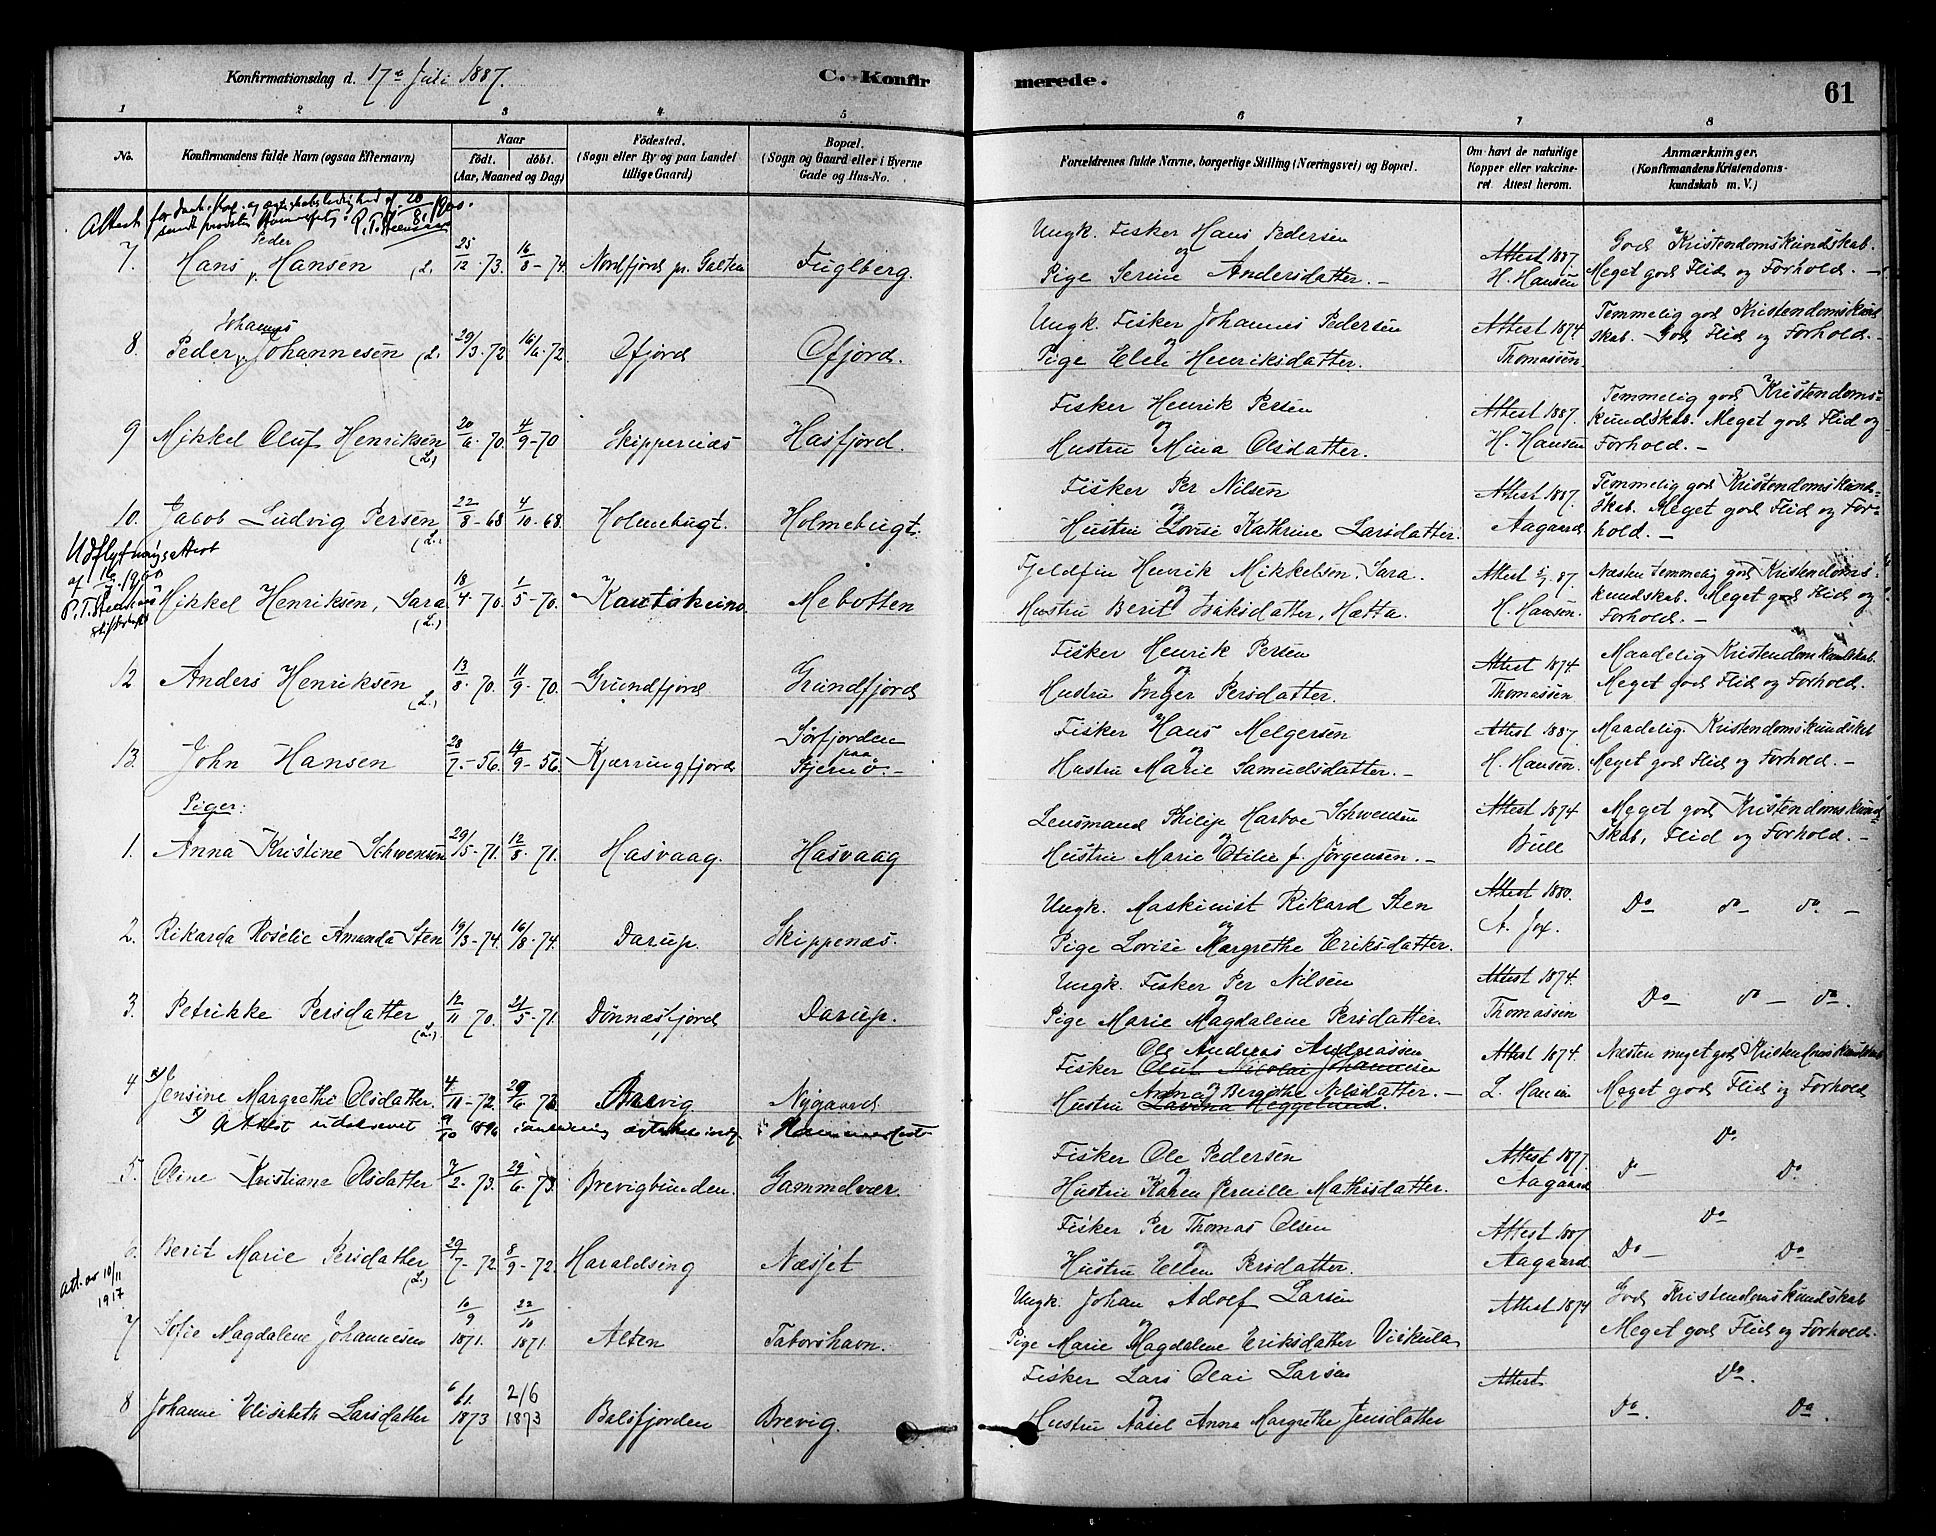 Konfirmationsdag d. 17de Juli 1887.
C. Konfir
merede.
61
1 2 3 4 5 6 7 8
No.
Konfirmandens fulde Navn (ogsaa Efternavn)
Naar
födt.
döbt.
(Aar, Maaned og Dag)
Födested.
(Sogn eller By og paa Landet
tillige Gaard)
Bopæl.
(Sogn og Gaard eller i Byerne
Gade og Hus-No.
Forældrenes fulde Navne, borgerlige Stilling (Næringsvei) og Bopæl.
Om havt de naturlige
Kopper eller vakcine-
ret. Attest herom.
Anmærkninger.
(Konfirmandens Kristendoms-
kundskab m. V.)
Peder
7. Hans v. Hansen (L. 25/12-73. 16/8-74. Nordfjord pr. Galten Fuglberg.
Ungk. Fisker Hans Pedersen
og
Pige Serine Andersdatter.-
Attest 1887
H. Hansen
God Kristendomskundskab.
Meget god Flid og Forhold.-
Johannes
8. Peder v. Johannesen (L. 29/3-72 16/6-72. Ofjord Ofjord.
Ungk. Fisker Johannes Pedersen
og
Pige Elen Henriksdatter.
Attest 1874.
Thomassen.
Temmelig god Kristendomskund
skab. God Flid og Forhold.-
9 Mikkel Oluf Henriksen (L.) 20/6-70. 4/9-70 Skippernæs Hasfjord.
Fisker Henrik Persen
og
Hustru Mina Olsdatter.
Attest 1887.
H. Hansen
Temmelig god Kristendoms-
kundskab. Meget god Flid og
Forhold.-
10. Jacob Ludvig Persen (L. 22/8-68 4/10-68. Holmebugt. Holmebugt.
Fisker Per Nilsen
og
Hustru Lovise Kathrine Larsdatter.
Attest 1887.
Aagaard
Temmelig god Kristendomskund-
skab. Meget god Flid og For-
hold.-
Udflytningsattest
Mikkel Henriksen, Sara (L.) 18/4-70. 1/5-70. Kautokeino Mebotten
Fjeldfin Henrik Mikkelsen, Sara.
og
Hustru Berit Isaksdatter, Hætta.
Attest 5/7 87
H. Hansen.
Næsten temmelig god Kristendoms-
kundskab. Meget god Flid og
Forhold.-
12 Anders Henriksen (L.) 13/8-70. 11/9-70. Grundfjord Grundfjord
Fisker Henrik Persen
og
Hustru Inger Persdatter.
Attest 1874.
Thomassen
Maadelig Kristendomskundskab.
Meget god Flid og Forhold.
13. John Hansen 28/7-56. 14/9-56. Kjærringfjord Sørfjorden
paa
Stjernø.-
Fisker Hans Melgersen
og
Hustru Marie Samuelsdatter.-
Attest 1887.
H. Hansen.
Maadelig Kristendomskundskab
Meget god Flid og Forhold.-
Piger:
1. Anna Kristine Schwensen 12/8-71. Hasvaag. Hasvaag
Lensmand Philip Harboe Schwensen
og
Hustru Marie Otilie f. Jørgensen.-
Attest 1874
Bull
Meget god Kristendomskund-
skab, Flid og Forhold.-
2. Rikarda Roselie Amanda Sten 19/3-74. 16/8-74. Darup. Skippenæs.
Ungk. Maskinist Rikard Sten
og
Pige Lovise Margrethe Eriksdatter.
Attest 1880.
A. Jox.
Do do do.-
3. Petrikke Persdatter (L.) 12/11 70. 21/5-71. Dönnesfjord Darup.
Ungk. Fisker Per Nilsen
og
Pige Marie Magdalene Persdatter.
Attest 1874.
Thomassen
Do do do.
4 Jensine Margrethe Olsdatter. 4/11-72. 29/6-73 Brevig Nygaard
x) Attest udskrevet 9/10 1896
Ole Andreas Andreassen
Fisker Oluf Nicolai Johannesen
og
Anna Bergithe Nilsdatter.-
Hustru Lavina Heggeland.
Attest 1874.
L. Hansen
Næsten meget god Kristendomskundskab
Meget god Flid og Forhold
5. Oline Kristiane Olsdatter 7/2-73. 29/6-73. Brevigbunden. Gammelvær.
Fisker Ole Pedersen
og
Hustru Karen Pernille Mathisdatter.
Attest 1877.
Aagaard
Do
Do Do.
6. Berit Marie Persdatter (L.) 29/7-72. 8/9-72. Haraldseng Næsset
Fisker Per Thomas Olsen
og
Hustru Ellen Persdatter.
Attest 1887.
Aagaard
Do
Do Do
att. av 10/11
1917
7 Sofie Magdalene Johannesen 10/9 1871. 22/10 1871. Alten Taborshavn.
Ungk. Johan Adolf Larsen
og
Pige Marie Magdalene Eriksdatter Viskula
Attest 1874
God Kristendomskundskab
Meget god Flid og Forhold.
8 Johanne Elisebeth Larsdatter 6/1. 1873 2/6 1873 Balsfjorden Brevig.
Fisker Lars Olai Larsen
og
Hustru Aasel Anna Margrethe Jensdatter
Attest
Do.
Do. Do.